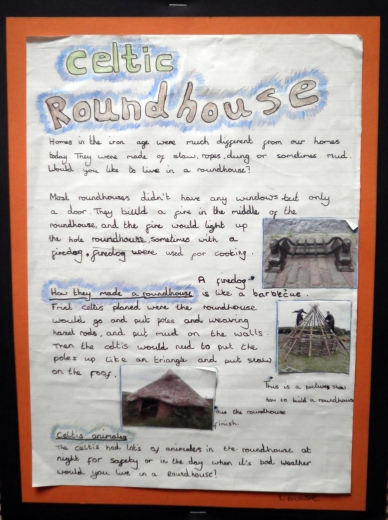 Celtic
Roundhouse
Homes in the iron age were much different from our homes
today. They were made of staw, ropes, dung or sometimes mud.
Would you like to live in a roundhouse?
Most roundhouses didn't have any windows but only
a door. They build a fire in the middle of the
roundhouse, and the fire would light up
the hole roundhouse sometimes with a
firedog. firedog were used for cooking.
A firedog
How they made a roundhouse is like a barbecue.
First celtis planed were the roundhouse
would go and put pole and weaving
hazel rods, and put mud on the walls.
Then the celtis would need to put the
poles up like an triangle and put staw
on the roof.
This is a picture
how to build a roundhouse
This the roundhouse
finish.
Celtic animales
The celtis had lots of animales in the roundhouse at
night for safety or in the day when it's bad weather
would you live in a Roundhouse!